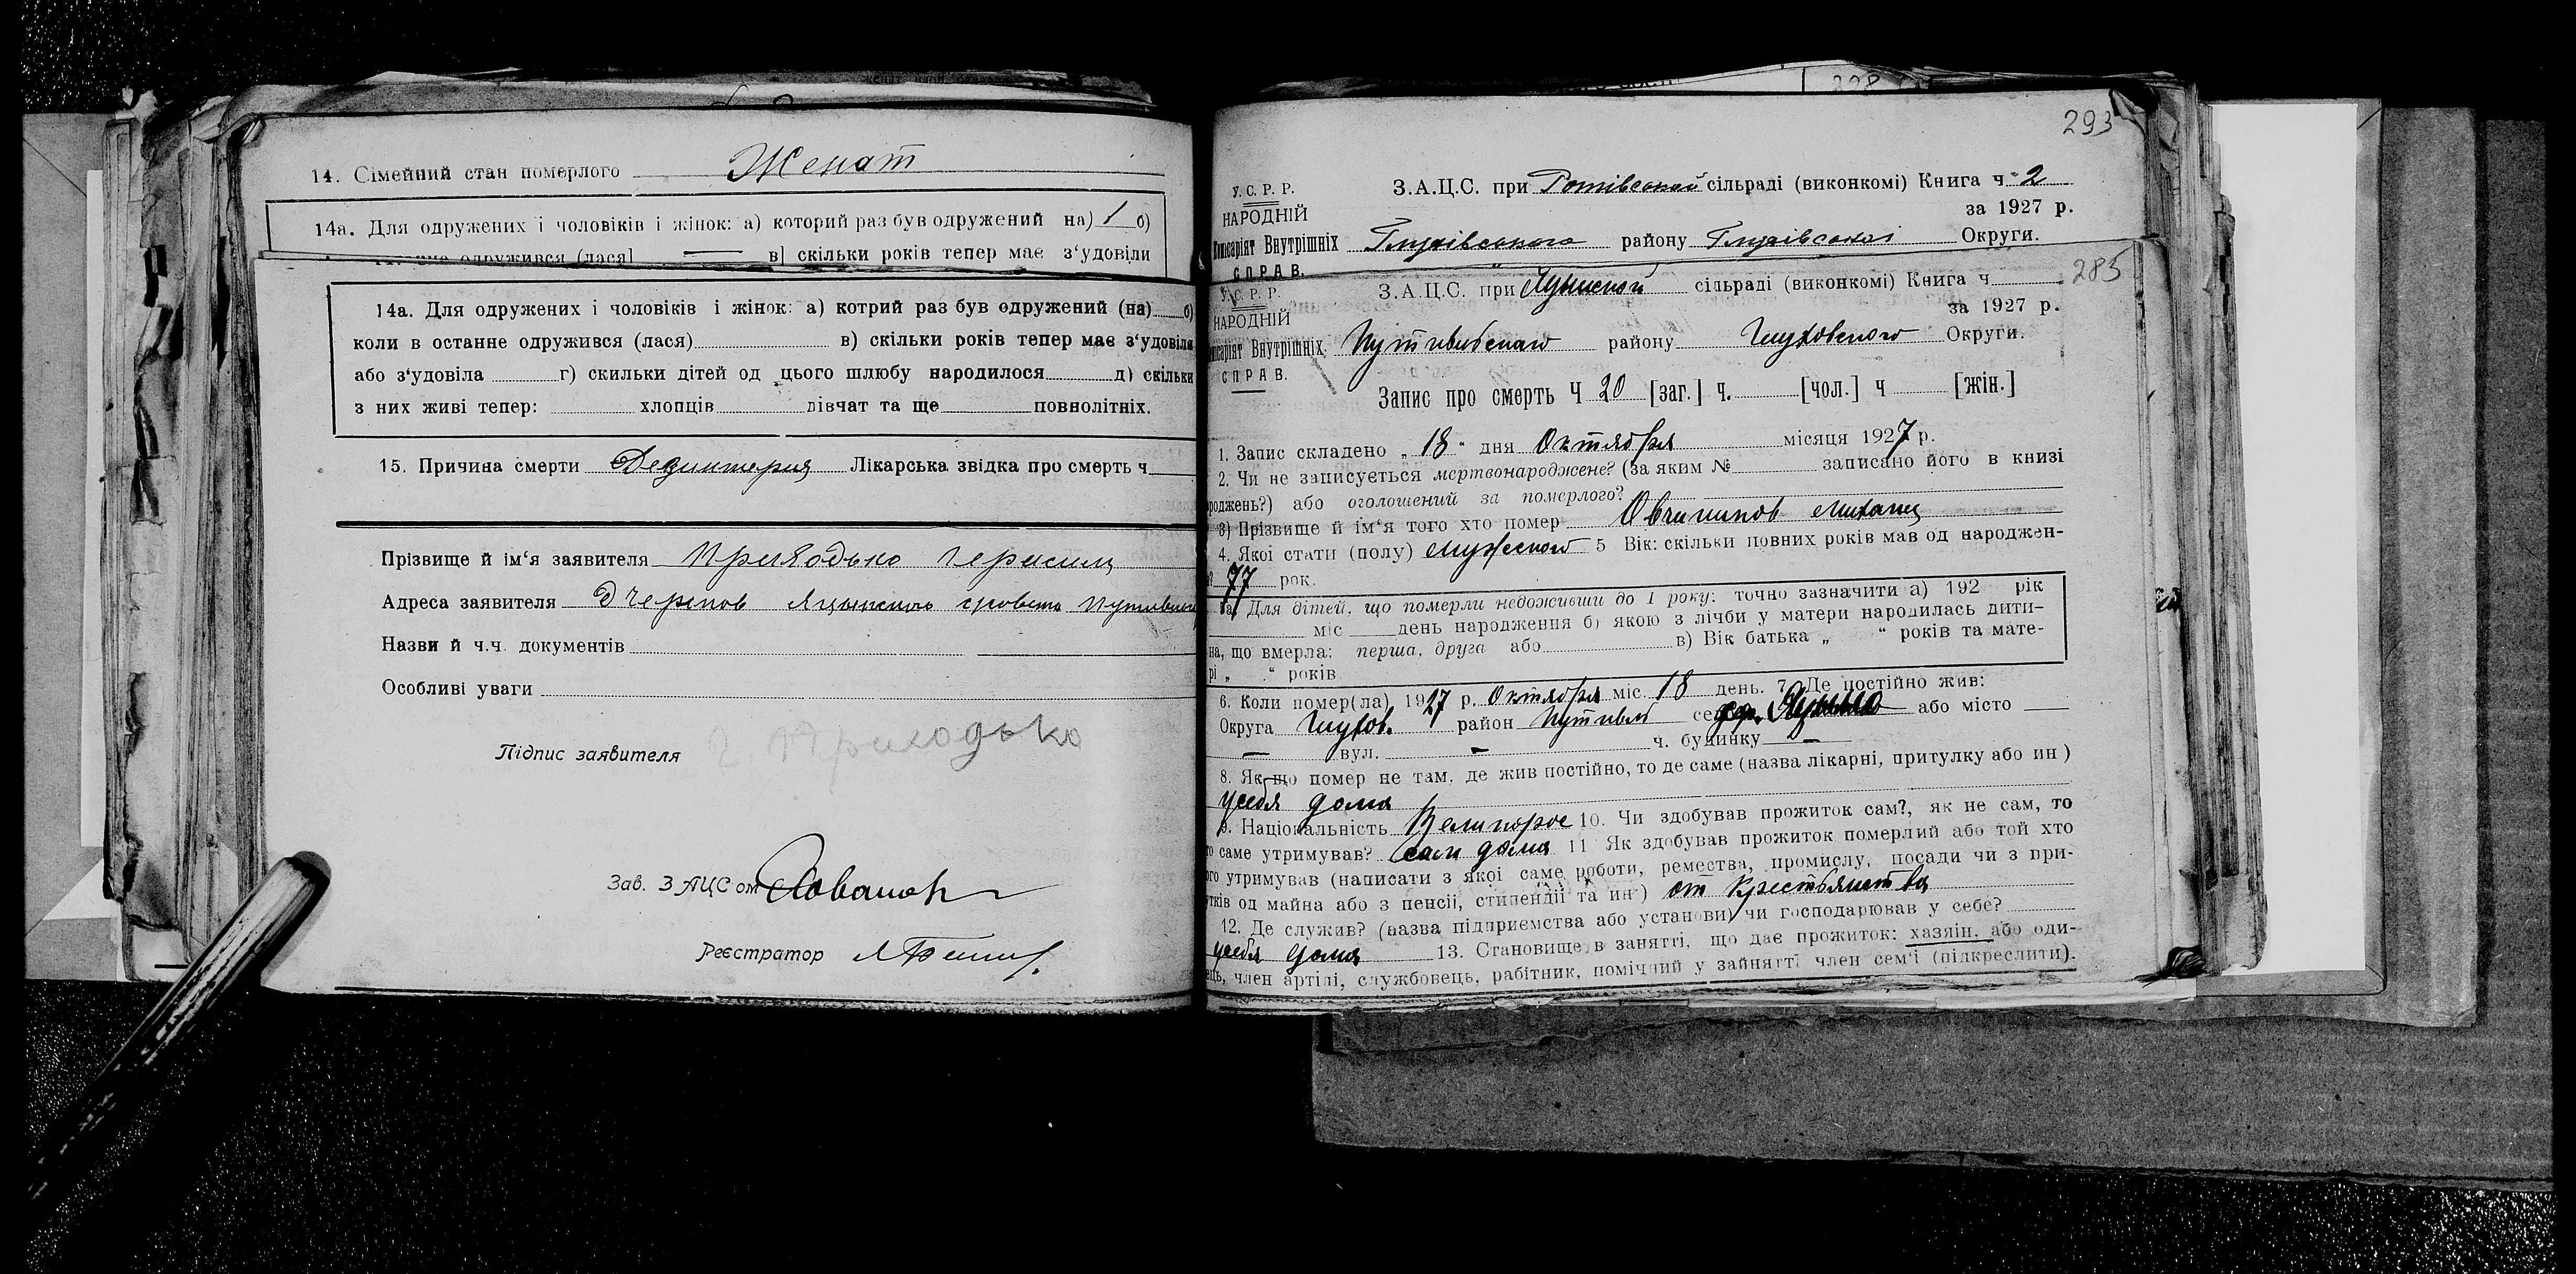 14. Сімейний стан померлого Женат
14а. Для одружених і чоловіків і жінок: а) которий раз був одружений на) 1 б)
одружився (лася) в] скільки років тепер має з‘удовіли
14а. Для одружених і чоловіків і жінок: а) котрий раз був одружений (на) б)
коли в останне одружився (лася) в) скільки років тепер має з‘удовіла
або з‘удовіла г) скильки дітей од цього шлюбу народилося д) скільки
з них живі тепер: хлопців дівчат та ще повнолітніх.
15. Причина смерти Дезинтерия Лікарська звідка про смерть ч
Прізвище й ім‘я заявителя Приходько Герасим
Адреса заявителя Яцынского
Назви й ч.ч. документів
Особливі уваги
Підпис заявителя Г Приходько
Зав. ЗАЦСом
Реєстратор
293
У. С. Р. Р. З.А.Ц.С. при сільраді (виконкомі) Книга ч 2
НАРОДНІЙ за 1927 р.
Внутрішніх Глухівського району Глухівської Округи.
СПРАВ.
285
У. С. Р. Р. З.А.Ц.С. при Яцынской сільраді (виконкомі) Книга ч
НАРОДНІЙ за 1927 р.
Внутрішніх Путивльского району Глуховского Округи.
СПРАВ.
Запис про смерть Ч 20 [заг.] ч. [чол.] ч [жін.]
1. Запис складено „ 18 “ дня Октября місяця 1927 р.
2. Чи не записується мертвонароджене? (за яким № записано його в книзі
роджень?) або оголошений за померлого?
3) Прізвище й ім‘я того хто помер Овчинников Михаил
4. Якоі стати (полу) мужеского 5 Вік: скільки повних років мав од народжен-
77 рок.
Для дітей, що померли недоживши до 1 року: точно зазначити а) 192 рік
міс день народження б) якою з лічби у матери народилась дити-
на, що вмерла: перша, друга або в) Вік батька „ “ років та мате-
рі „ “ років
6. Коли помер(ла) 1927 р. Октября міс. 18 день. 7. Де постійно жив:
Округа Глухов. район Путивль або місто
вул. ч. будинку
8. Як що помер не там, де жив постійно, то де саме (назва лікарні, притулку або ин )
усебя дома
9. Національність Великорос 10. Чи здобував прожиток сам?, як не сам, то
то саме утримував? сам дома 11 Як здобував прожиток померлий або той хто
ого утримував (написати з якоі саме роботи, ремества, промислу, посади чи з при-
тків од майна або з пенсіі, стипендіі та ин ) от крестьянства
12. Де служив? (назва підприємства або установи) чи господарював у себе?
усебя дома 13. Становище в занятті, що дає прожиток: хазяін, або оди-
ець, член артілі, службовець, рабітник, помічний у зайнятті член сем‘і (підкреслити).